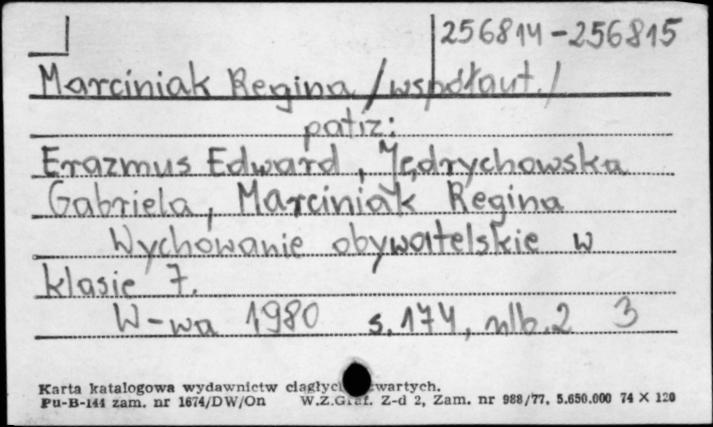 256814-256815
Marciniak Regina /współaut./
patrz:
Erazmus Edward, Jędrychowska
Gabriela, Marciniak Regina
Wychowanie obywatelskie w
klasie 7.
W-wa 1980 s. 174, nlb. 2 3
Karta katalogowa wydawnictw ciągłyc wartych.
Pu-B-144 zam. nr 1674/DW/On W.Z.Graf. Z-d 2, Zam. nr 988/77. 5.650.000 74 X 120